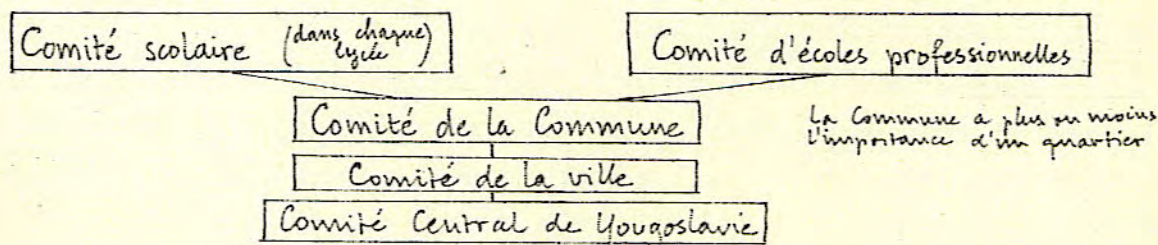 Comité scolaire (dans chaque
lycée)
Comité d'écoles professionnelles
Comité de la Commune
La Commune a plus ou moins
l'importance d'un quartier
Comité de la ville
Comité Central de Yougoslavie